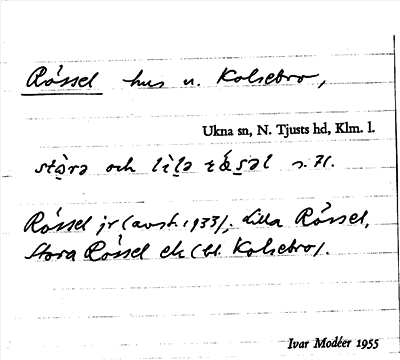 Rössel hus u. Kolsebro,
Ukna sn, N. Tjusts hd, Klm. l.
och
Rössel jr (avst. 1933); Lilla Rössel,
Stora Rössel ek (bl. Kolsebro).
Ivar Modéer 1955